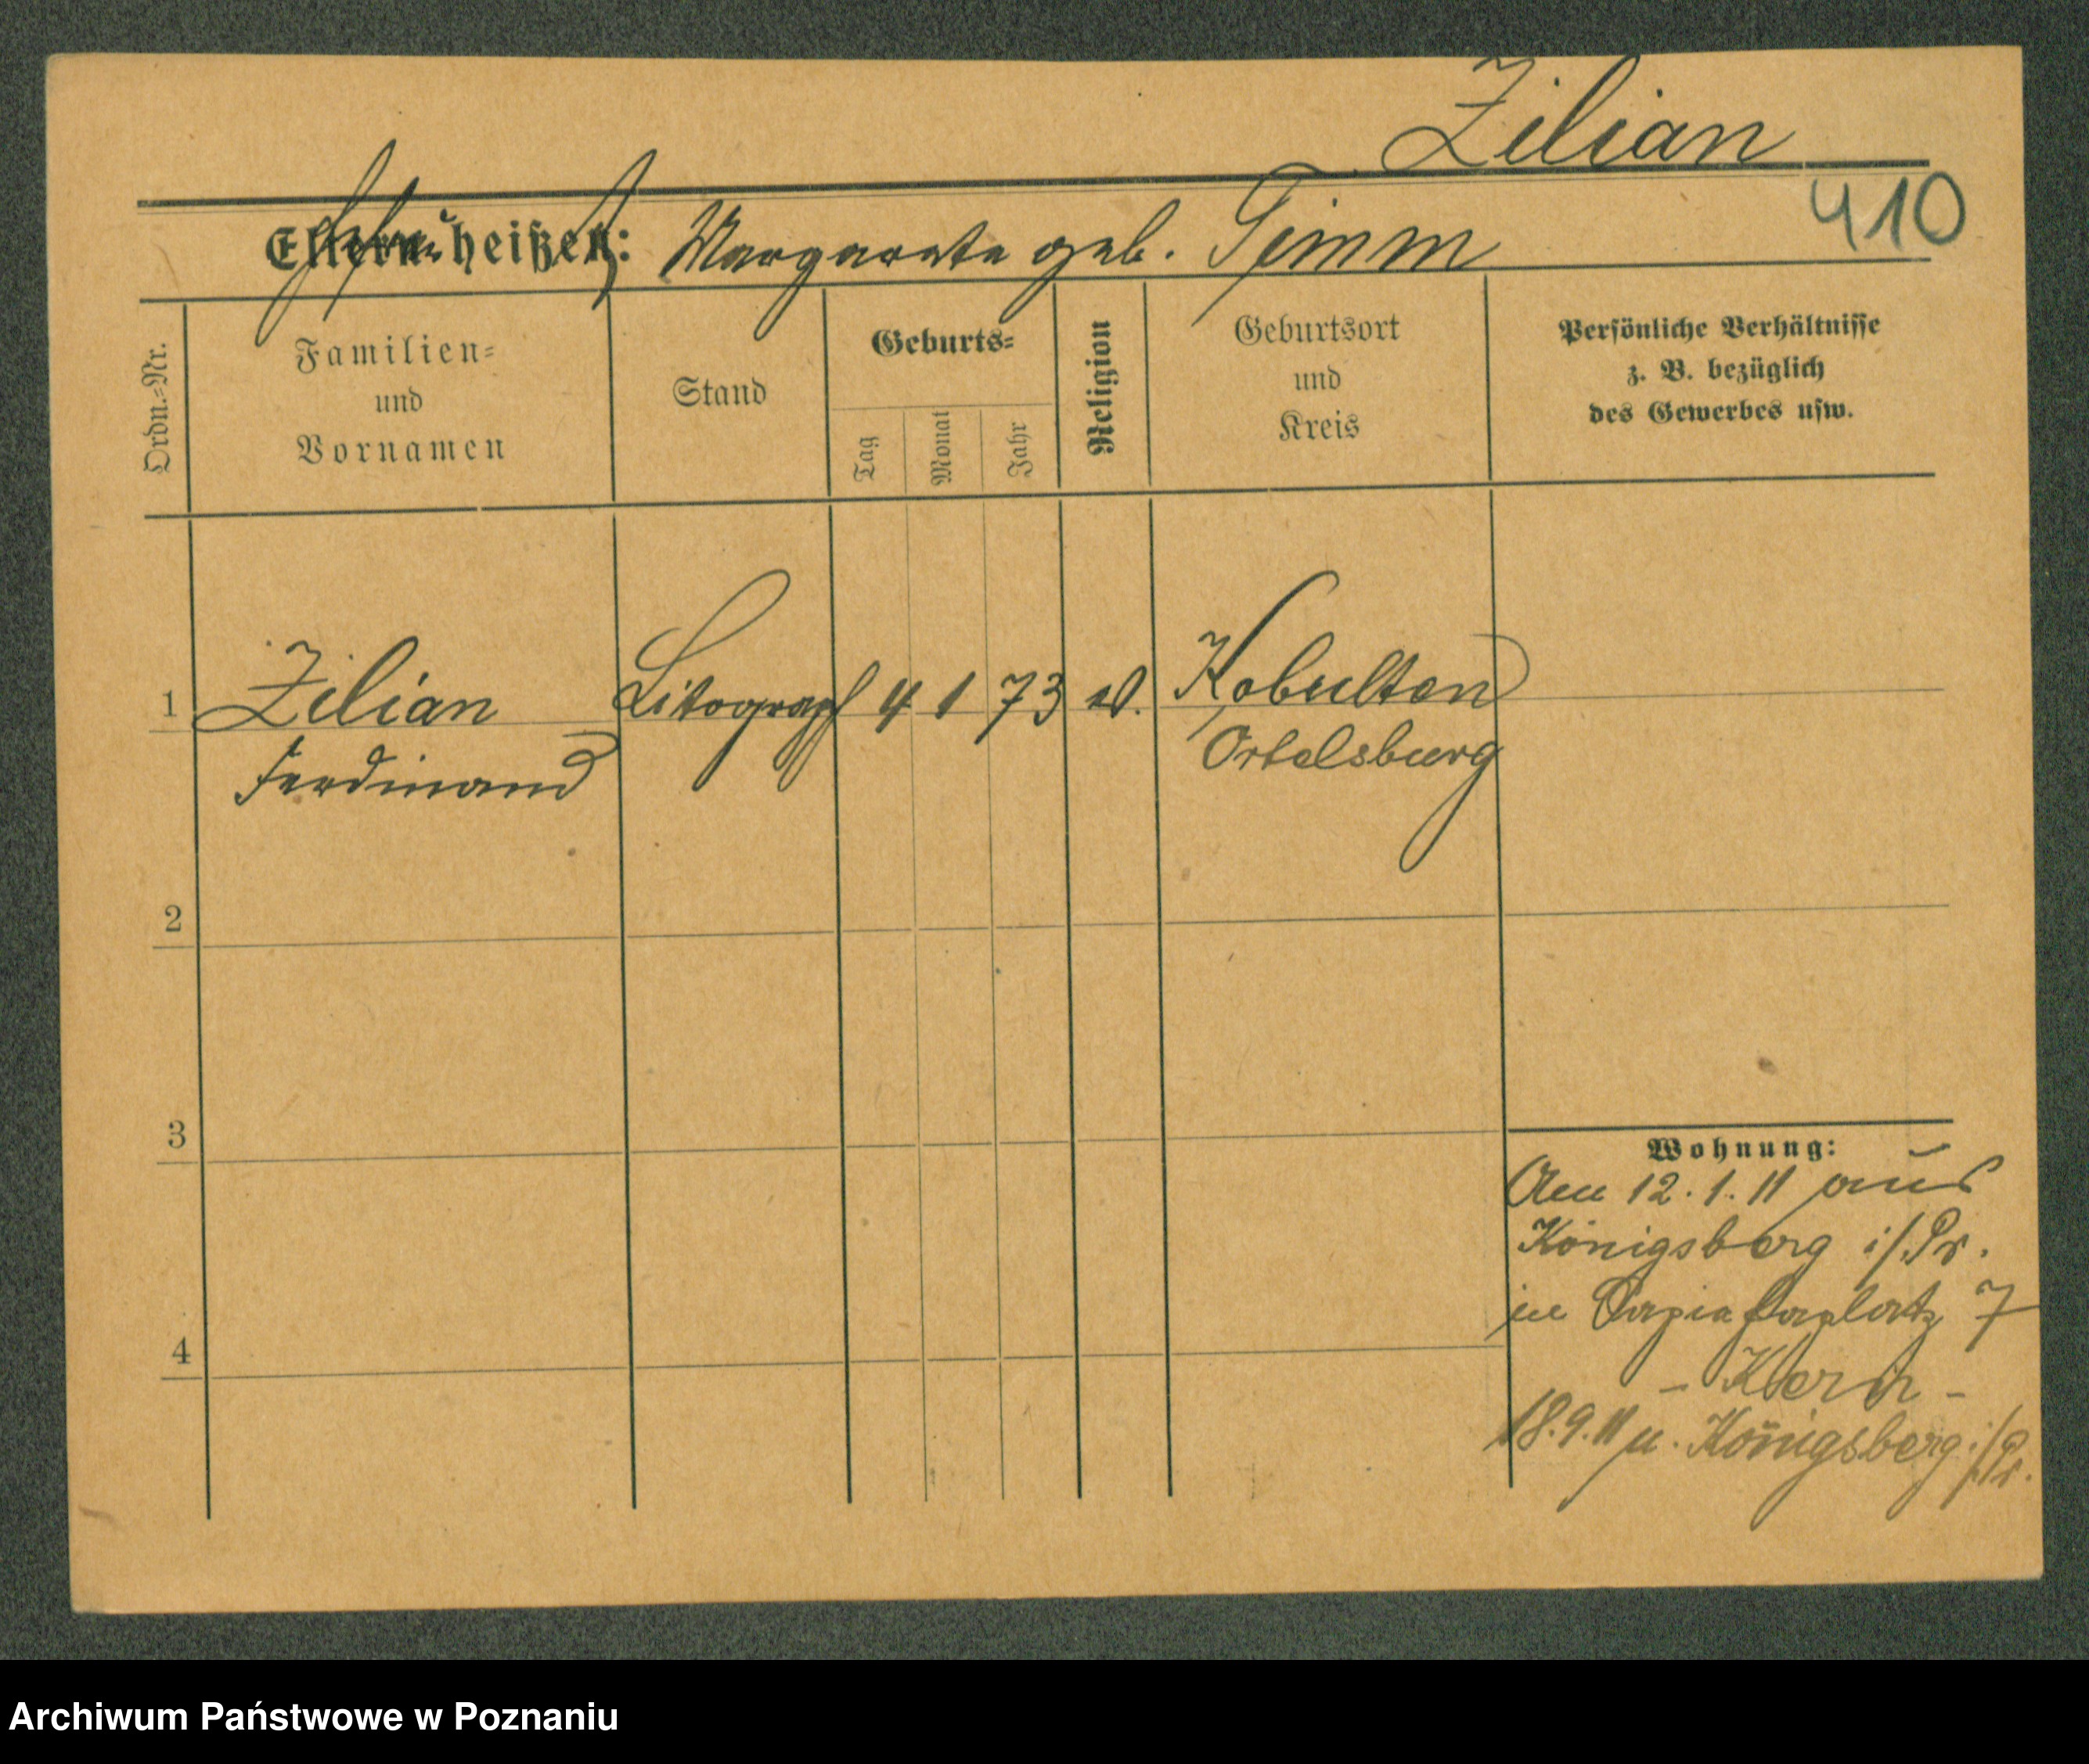 Zilian
410
Eltern heißen: Margarete geb. Timm
Ordn.-Nr.
Familien-
und
Vornamen
Stand
Geburts-
Tag
Monat
Jahr
Religion
Geburtsort
und
Kreis
Persönliche Verhältnisse
z. B. bezüglich
des Gewerbes usw.
1 Zilian Litograph 4 1 73 Kobulten
Ferdinand Ortelsburg
2
3
4
Wohnung:
12.1.11 aus
Königsberg i/Pr.
7
18.9.11 n. Königsberg i/Pr.
Archiwum Państwowe w Poznaniu